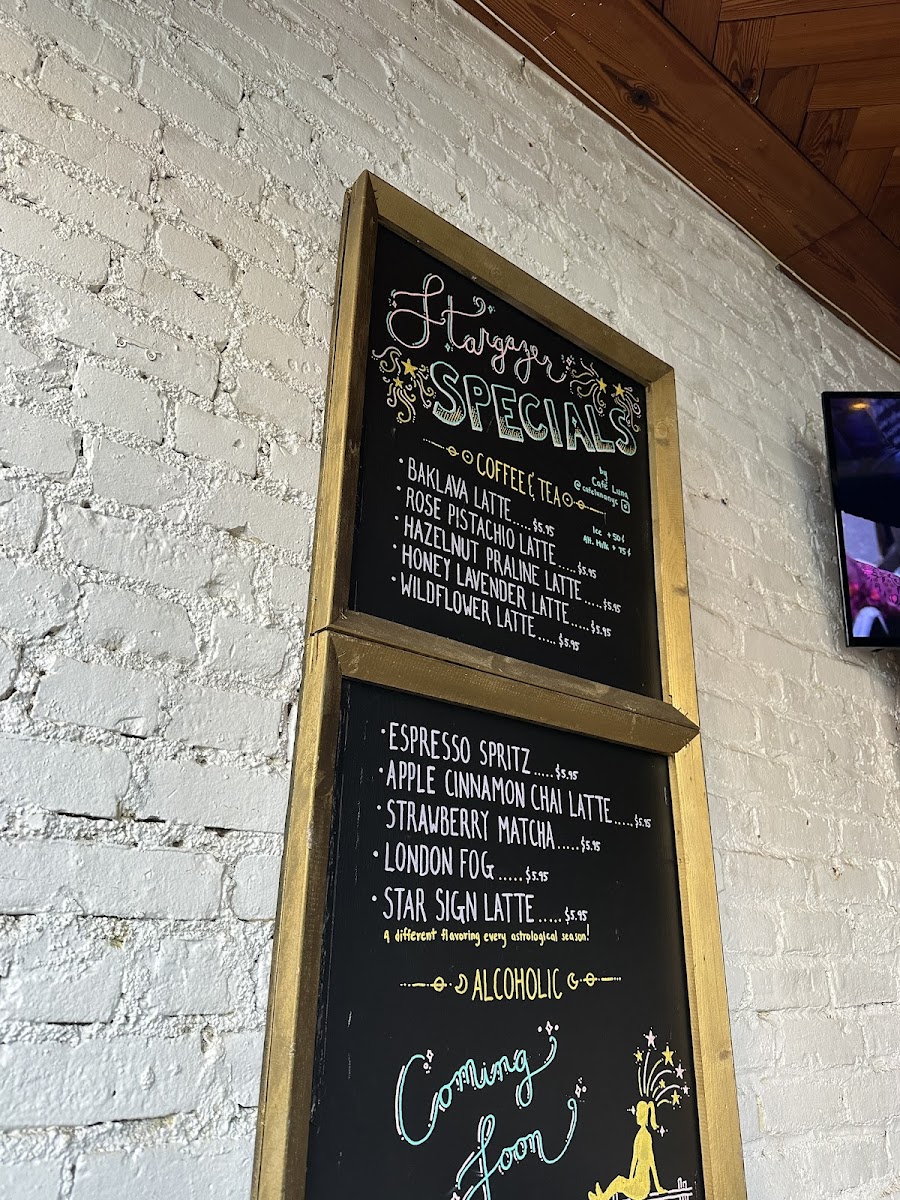 Stargazer
SPECIALS
by
Café Luna
@cafelunanyc
COFFEE & TEA
Ice +50¢
Alt. Milk + 75¢
• BAKLAVA LATTE....$5.95
• ROSE PISTACHIO LATTE.....$5.95
• HAZELNUT PRALINE LATTE.....$5.95
• HONEY LAVENDER LATTE.....$5.95
• WILDFLOWER LATTE.....$5.95
• ESPRESSO SPRITZ.....$5.95
• APPLE CINNAMON CHAI LATTE.....$5.95
• STRAWBERRY MATCHA.....$5.95
• LONDON FOG.....$5.95
• STAR SIGN LATTE.....$5.95
A different flavoring every astrological season!
ALCOHOLIC
Coming
Soon